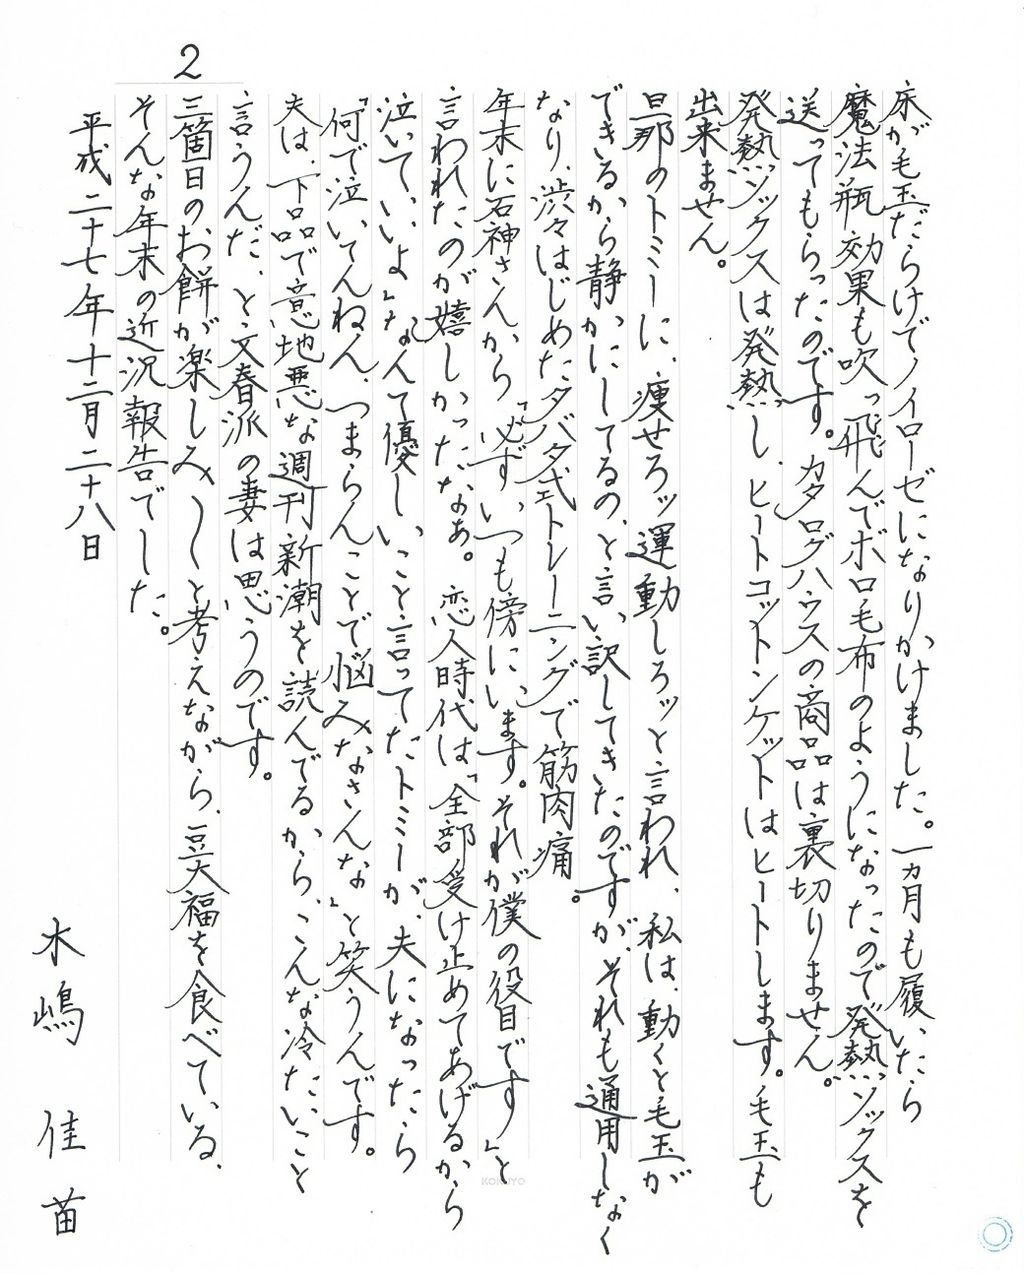 2
床が毛玉だらけでノイローゼになりかけました。一ヵ月も履いたら
魔法瓶効果も吹っ飛んでボロ毛布のようになったので発熱ソックスを
送ってもらったのです。カタログハウスの商品は裏切りません。
発熱ソックスは発熱し、ヒートコットンケットはヒートします。毛玉も
出来ません。
旦那のトミーに、痩せろッ運動しろッと言われ、私は、動くと毛玉が
できるから静かにしてるの、と言い訳してきたのですが、それも通用しなく
なり、渋々はじめたタバタ式トレーニングで筋肉痛。
年末に石神さんから「必ずいつも傍にいます。それが僕の役目です」と
言われたのが嬉しかったなぁ。恋人時代は「全部受け止めてあげるから
泣いていいよ」なんて優しいこと言ってたトミーが、夫になったら
「何で泣いてんねん、つまらんことで悩みなさんな」と笑うんです。
夫は、下品で意地悪な週刊新潮を読んでるから、こんな冷たいこと
言うんだ、と文春派の妻は思うのです。
三箇日のお餅が楽しみ〜〜と考えながら、豆大福を食べている、
そんな年末の近況報告でした。
平成二十七年十二月二十八日
木嶋 佳苗
KOKUYO